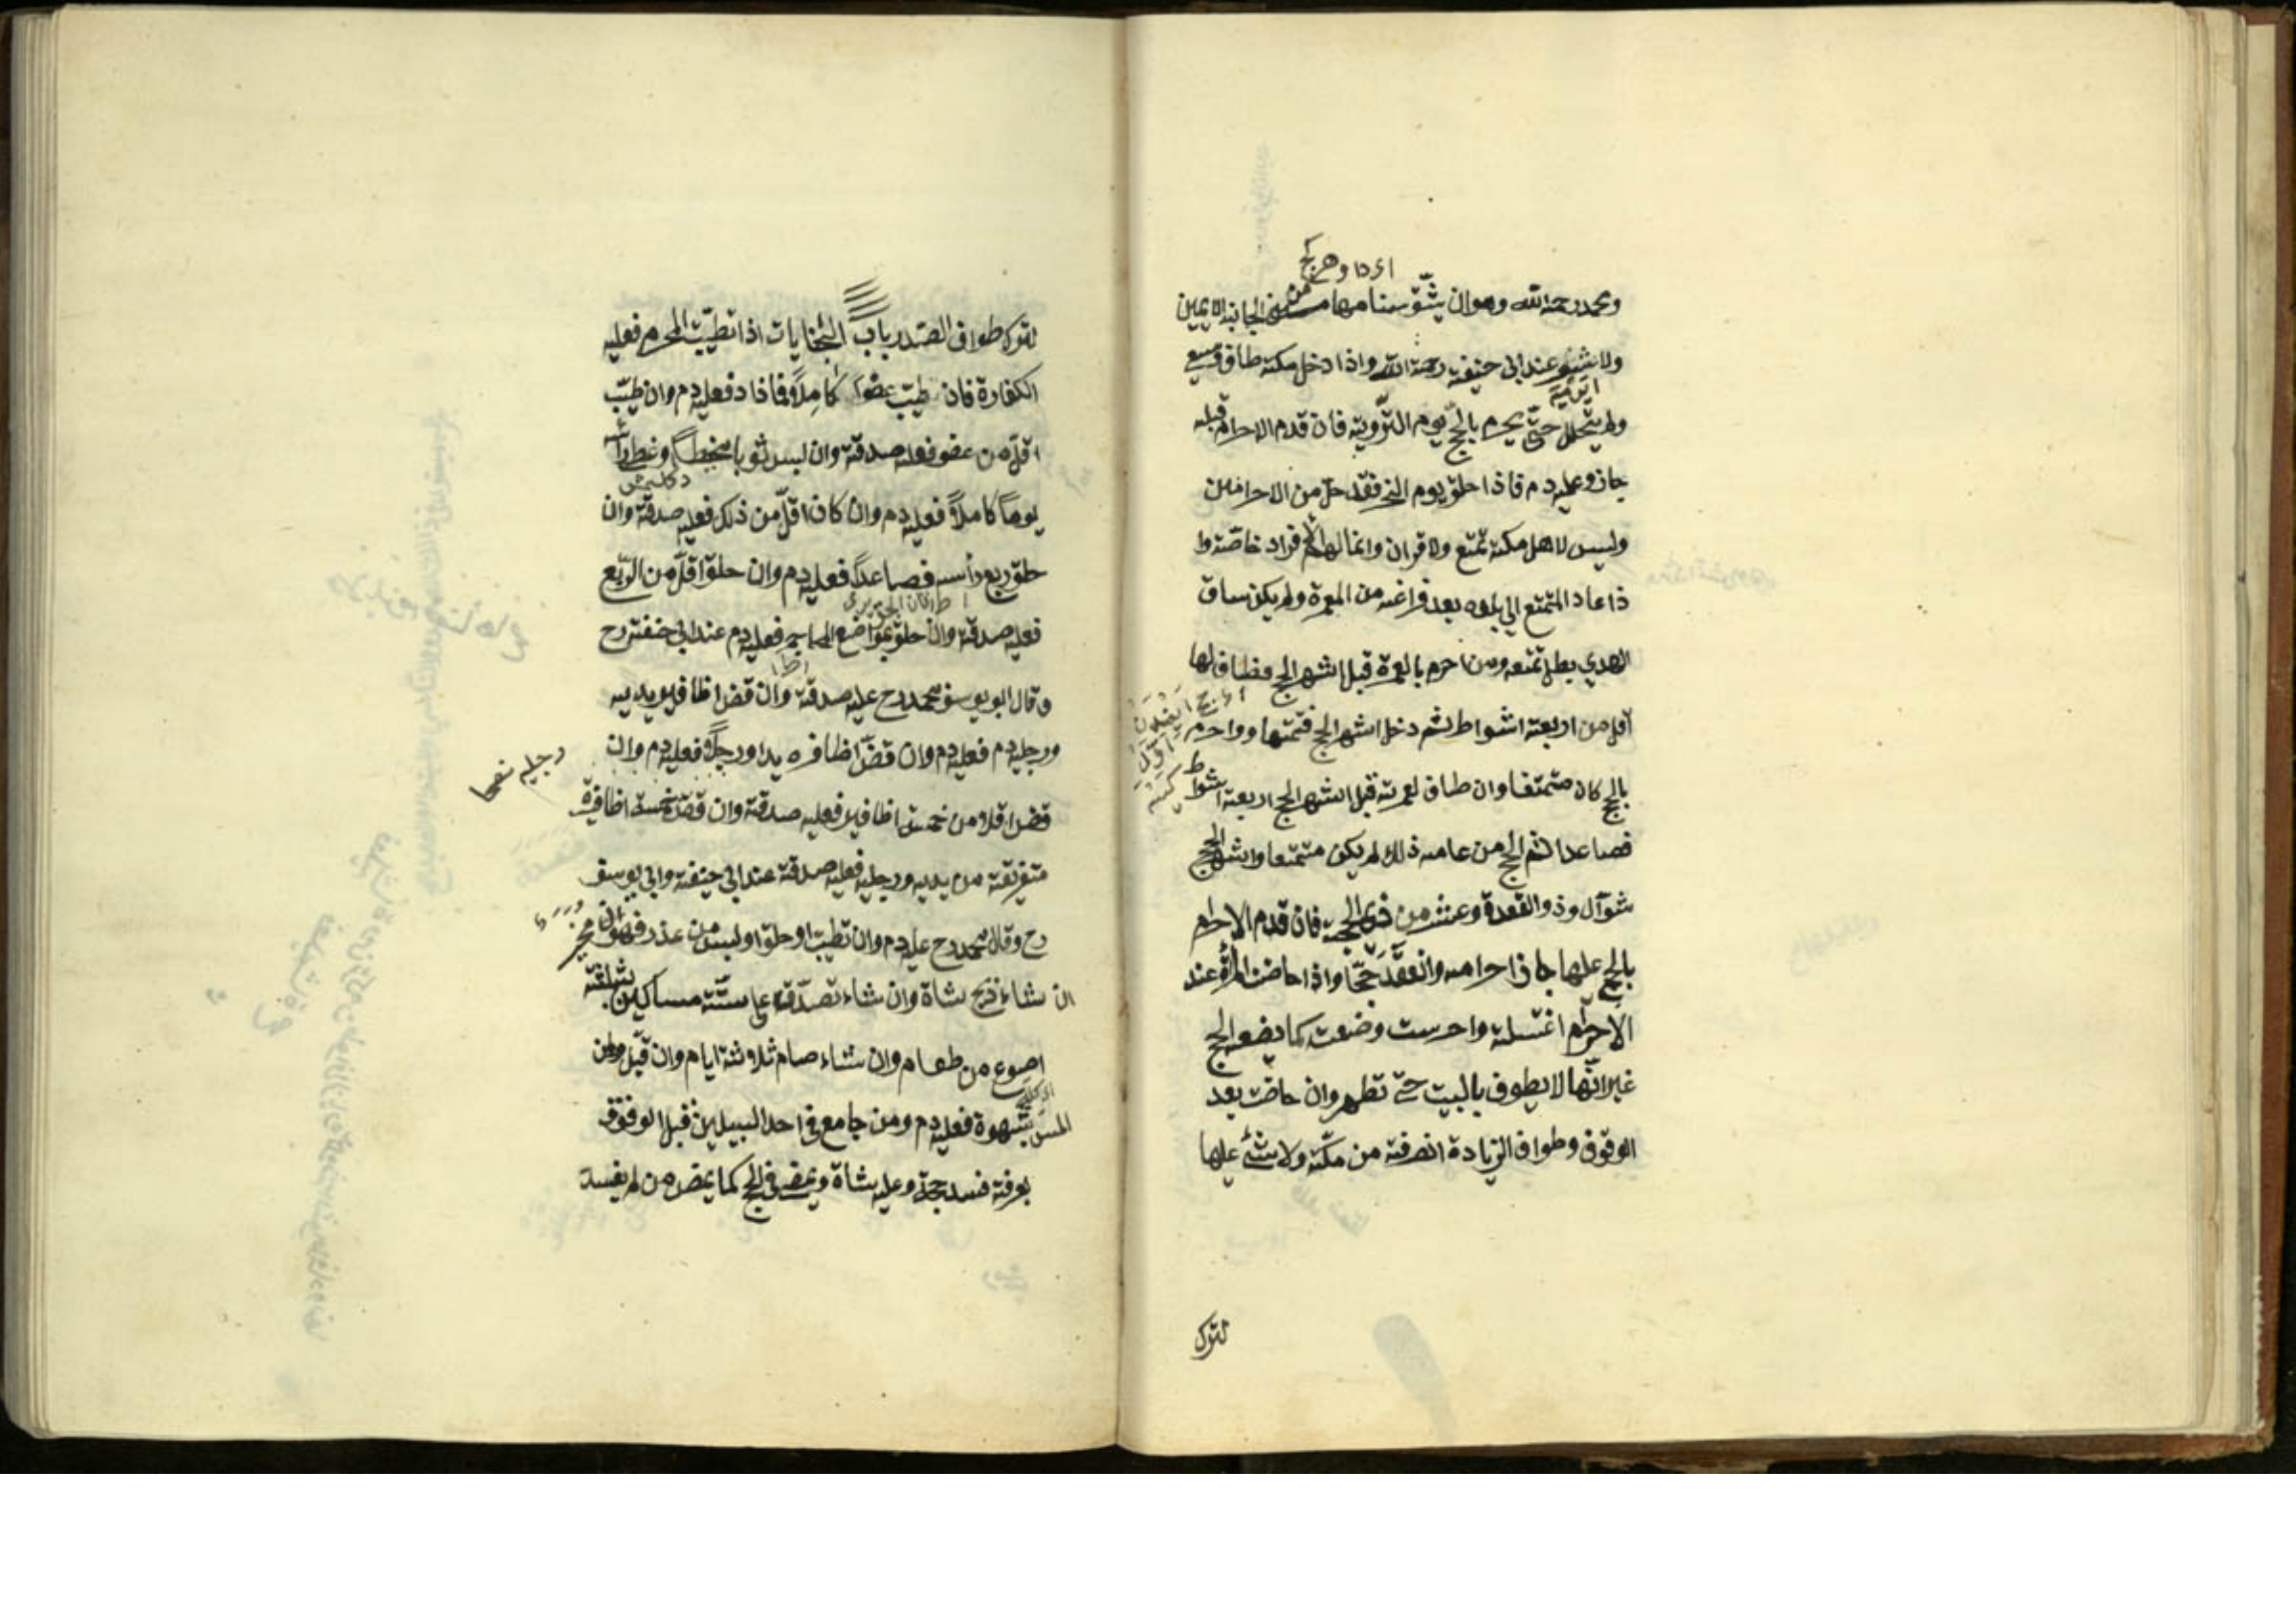 ومحمد رحمه الله وهو ان يشق سنامها من الجانب الايمن
ولا يشعر عند ابى حنيفة رحمة الله واذا دخل مكة طاف وسعى
ولم يتحلل حتى يحرم بالحج يوم التروية فان قدم الاحرام قبله
جاز وعليه دم فاذا حلق يوم النحر فقد حل من الاحرامين
وليس لاهل مكة تمتع ولا قران وانما لهم الافراد خاصة وا
ذا عاد المتمتع الى بلده بعد فراغه من العمرة ولم يكن ساق
الهدي بطل تمتعه ومن احرم بالعمرة قبل اشهر الحج فطاف لها
اقل من اربعة اشواط ثم دخل اشهر الحج فتمتها وواحرم
بالحج كان متمتعا وان طاف لعمرته قبل اشهر الحج اربعة اشواط
فصاعدا ثم الحج من عامه ذلك لم يكن متمتعا واشهر الحج
شوال وذو القعدة وعشر من ذى الحجة فان قدم الاحرام
بالحج عليها جاز احرامه وانعقد حجا واذا حاضت المرأة عند
الاحرام اغتسلت واحرمت وضعت كما يضع الحج
غير انها لا يطوف بالبيت حتى تطهر وان حاضت بعد
الوقوف وطواف الزيادة انصرفت من مكة ولا شئ عليها
لترك
لترك طواف الصدر باب الجنايات اذا تطيب المحرم فعليه
الكفارة فان طيب عضوا كاملا فما زاد فعليه دم وان طيب
اقل من عضو فعليه صدقة وان لبس ثوبا مخيطا وغطا رأسه
يوما كاملا فعليه دم وان كان اقل من ذلك فعليه صدقة وان
حلق ربع رأسه فصاعدا فعليه دم وان حلق اقل من الربع
فعليه صدقة وان حلق مواضع المحاجم فعليه دم عند ابى حنيفة رح
وقال ابو يوسف ومحمد رح عليه صدقة وان قص اظافير يديه
ورجليه دم فعليه دم وان قص اظافره يدا ورجلا فعليه دم وان
قص اقل من خمسة اظافير فعليه صدقة وان قص خمسة اظافره
متفرقة من يديه ورجليه فعليه صدقة عند ابى حنيفة وابى يوسف
رح وقال محمد رح عليه دم وان تطيب او حلق او لبس من عذر فهو مخير
ان شاء ذبح شاة وان شاء تصدق على ستة مساكين بثلثة
اصوع من طعام وان شاء صام ثلاثة ايام وان قبل ولمن
المس بشهوة فعليه دم ومن جامع فى احد السبيلين قبل الوقوف
بعرفة فسد حجه وعليه شاة ويمضى فى الحج كما يمض من لم يفسد